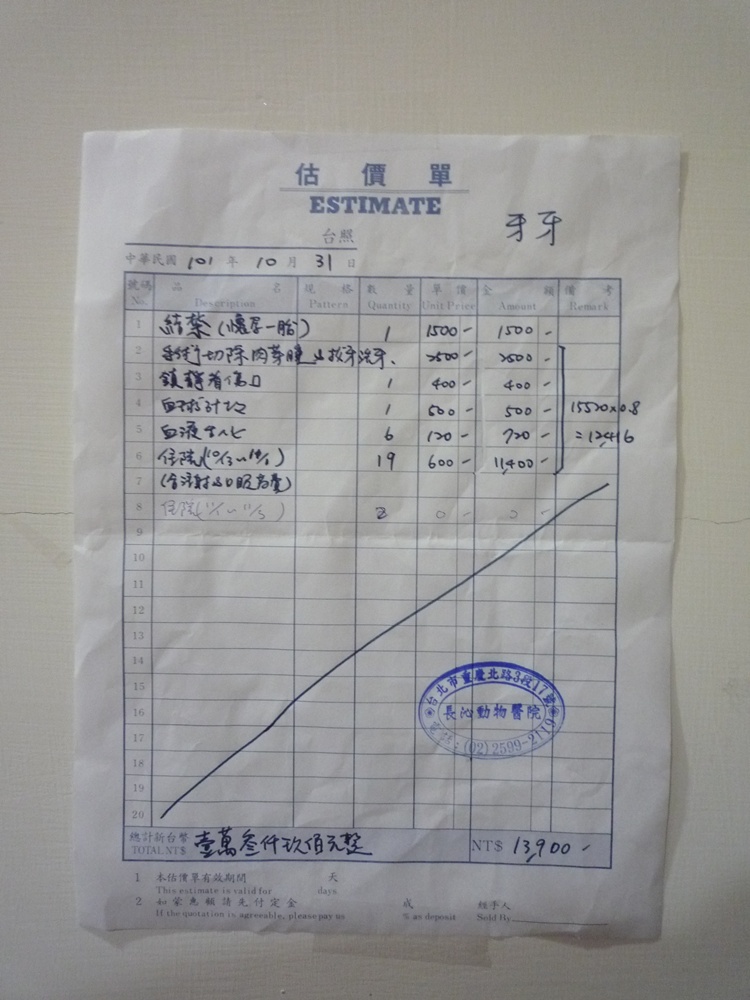 估價單
ESTIMATE
牙牙
台照
中華民國 101 年 10 月 31 日
號碼 品名 規格 數量 單價 金額 備考
No. Description Pattern Quantity Unit Price Amount Remark
1 結紮(懷孕一胎) 1 1500- 1500-
2 手術切除肉芽腫及拔牙洗牙、 2500- 2500-
3 鎮靜看傷口 1 400- 400-
4 血球計數 1 500- 500- 15520x0.8
5 血液生化 6 120- 720- =12416
6 住院 19 600- 11,400-
7 (含注射及口服
8 住院 2 0- 0-
9
10
11
12
13
14
15
16
17
18
19
20
台北市重慶北路3段17號
長沁動物醫院
(02)2599-2119
總計新台幣 壹萬叁仟玖佰元整
TOTAL NT$ NT$ 13,900-
1 本估價單有效期間 天
This estimate is valid for days
2 如蒙惠顧請先付定金 成 經手人
If the quotation is agreeable, please pay us % as deposit Sold By